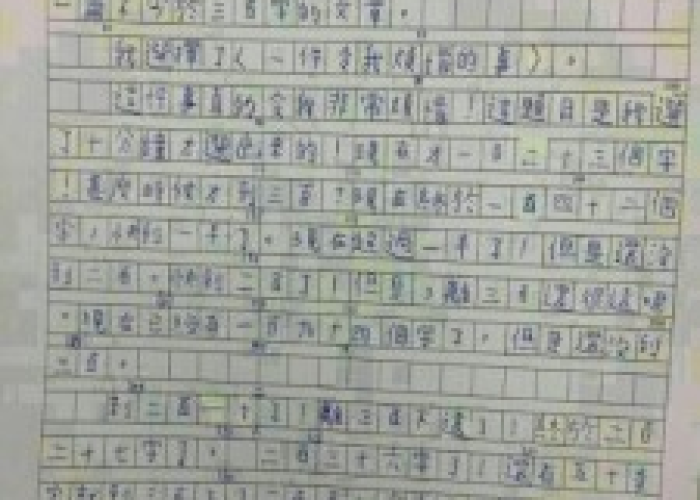 一篇不少於三百字的文章。
我選擇了〈一件令我煩惱的事〉。
這件事真的令我非常煩惱!這題目是我選
了十分鐘才選出來的!現在才一百二十三個字
!甚麼時候才到三百?現在終於一百四十二個
字,快到一半了。現在經過一半了!但是還沒
到二百,快到二百了!但是,離三百還很遠呢
。現在已經有一百九十四個字了,但是還沒到
二百。
到二百一十了!離三百不遠了!終於二百
二十七字了。二百三十六字了!還有五十多